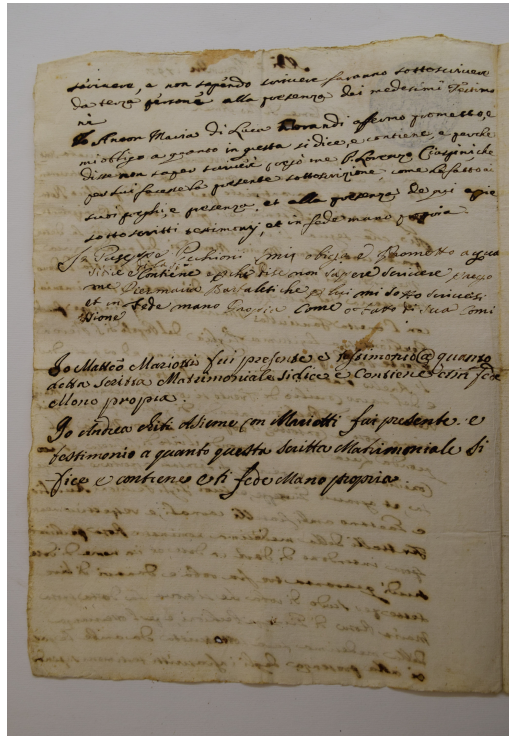 scrivere, e non sapendo scrivere faranno sottoscrivere
da terza persona alla presenza dei medesimi Testimo
ni
Io Anton Maria di Luca Morandi affermo prometto, e
mi obligo a quanto in questa si dice, e contiene, e perche
disse non saper scrivere pregò me P. Lorenzo che
per lui facesse la presente sottoscrizione come ho fatto a
suoi preghi, e presenza, et alla presenza de
sotto scritti testimonj, et in fede mano propria
Io Giuseppe mi obligo e Prometto a qua
si dice e Contiene e p che disse non sapere scrivere prego
me Piermaria che p lui mi sotto scrivessi
et in fede mano Propria Come ò fatto di Sua Comi
sione
Io Matteo Mariotti fui presente e testimonio a quanto
detta scritta Matrimoniale si dice e Contiene fede
Mono propria
Io Andrea assieme con Mariotti fui presente. e
testimonio a quanto questa scritta Matrimoniale Si
dice e contiene e ti fede Mano propria